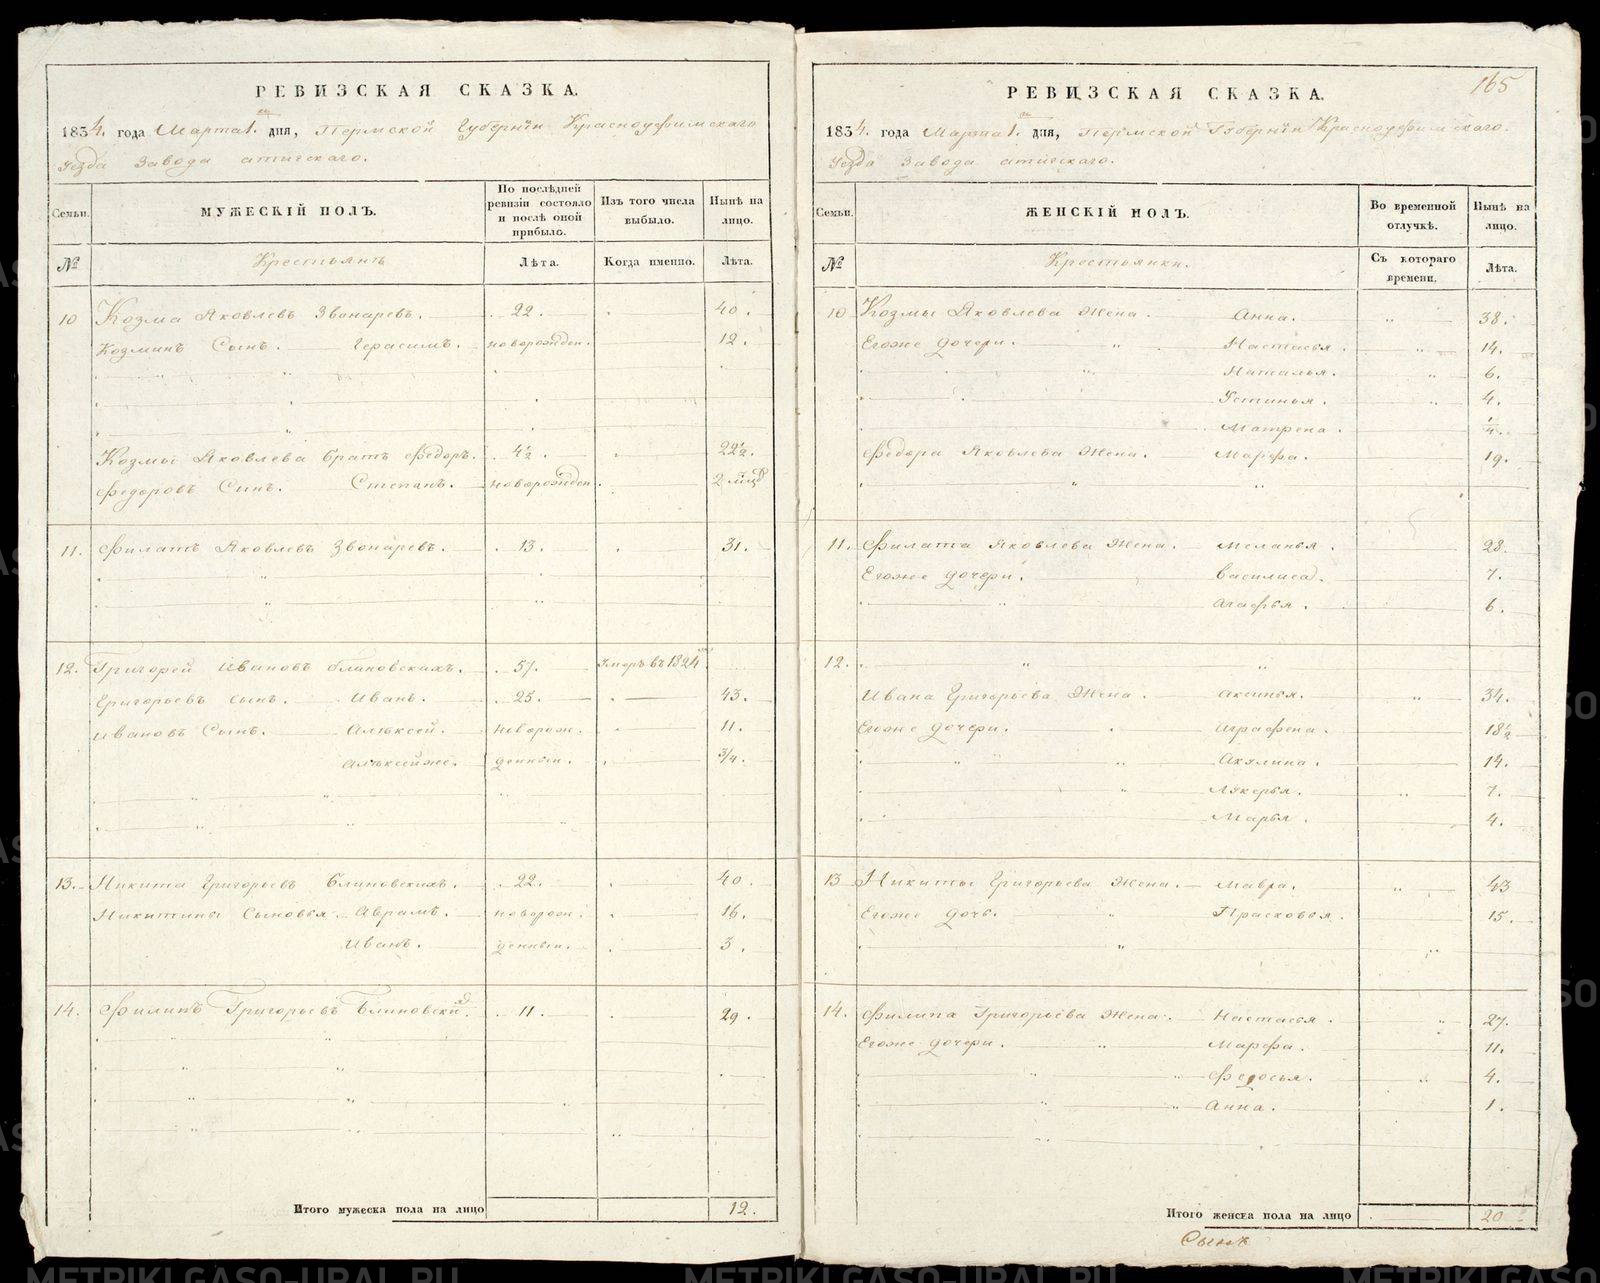 РЕВИЗСКАЯ СКАЗКА.
1834. года Марта 1. дня, Пермской Губернiи Красноуфимскаго
Уезда Завода атигскаго.
Семьи.
МУЖЕСКIЙ ПОЛЪ.
По послѣдней ревизiи состояло и послѣ оной прибыло.
Изъ того числа выбыло.
Нынѣ на лицо.
№
Крестьянъ
Лѣта.
Когда именно.
Лѣта.
10 Козма Яковлевъ Звонаревъ. 22. 40.
Козминъ Сынъ. Герасимъ. новорожден. 12.
Козмы Яковлева братъ Федоръ. 4½. 22½.
Федоровъ Сынъ. Степанъ. новорожден.
11. Филатъ Яковлевъ Звонаревъ. 13. 31.
12. Григорей Ивановъ блиновскихъ. 57. Умеръ въ 1824
Григорьевъ сынъ. Иванъ. 25. 43.
Ивановъ Сынъ. Алѣксей. новорож. 11.
Алѣксейже. денныи. 3/4.
13. Никита Григорьевъ Блиновскихъ. 22. 40.
Никитины Сыновья Аврамъ. новорож. 16.
Иванъ. денныи. 3.
14. Филипъ Григорьевъ Блиновски 11. 29.
Итого мужеска пола на лицо 12.
165
РЕВИЗСКАЯ СКАЗКА.
1834. года Марта 1. дня, Пермской Губернiи Красноуфимскаго.
Уезда Завода атигскаго.
Семьи.
ЖЕНСКIЙ ПОЛЪ.
Во временной отлучкѣ.
Нынѣ на лицо.
№
Крестьянки.
Съ котораго времени.
Лѣта.
10 Козмы Яковлева Жена. Анна. 38.
Егоже дочери. Настасья. 14.
Наталья. 6.
Устинья. 4.
Матрена.
Федора Яковлева Жена. Марфа. 19.
11. Филата Яковлева Жена. Меланья. 28.
Егоже дочери. Василиса. 7.
Агафья. 6.
12.
Ивана Григорьева Жена. Аксинья. 34.
Егоже дочери. Аграфена. 18½
Акулина. 14.
Лукерья. 7.
Марья. 4.
13 Никиты Григорьева Жена. Мавра. 43
Егоже дочь. Прасковья. 15.
14. Филипа Григорьева Жена. Настасья. 27.
Егоже дочери. Марфа. 11.
Федосья. 4.
Анна. 1.
Итого женска пола на лицо 20
METRIKI.GASO-URAL.RU
METRIKI.GASO-URAL.RU